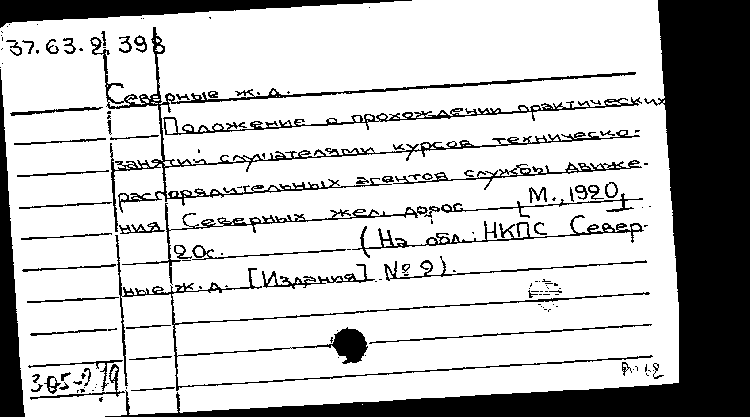 37.63.2 398
Северные ж.д.
Положение о прохождении практических
занятий слушателями курсов техническо-
распорядительных агентов службы движе-
ния Северных жел. дорог [М., 1920]
20с. (На обл.: НКПС Север-
ные ж.д. [Издания] № 2).
305-279